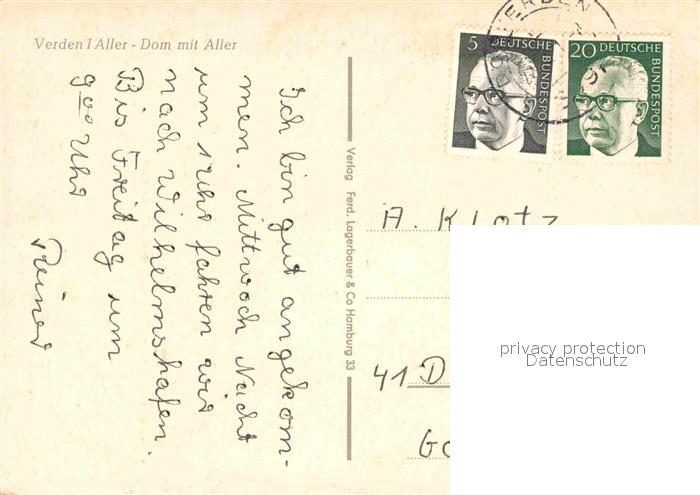 Verden / Aller - Dom mit Aller
Ich bin gut angekom-
men. Mittwoch Nacht
um 1 Uhr fahren wir
nach Wilhelmshafen.
Bis Freitag um
9oo Uhr
Reiner
Verlag Ferd. Lagerbauer & Co Hamburg 33
VERDEN
5 DEUTSCHE
BUNDESPOST
20 DEUTSCHE
BUNDESPOST
A. Klotz
41 D
Go
privacy protection
Datenschutz